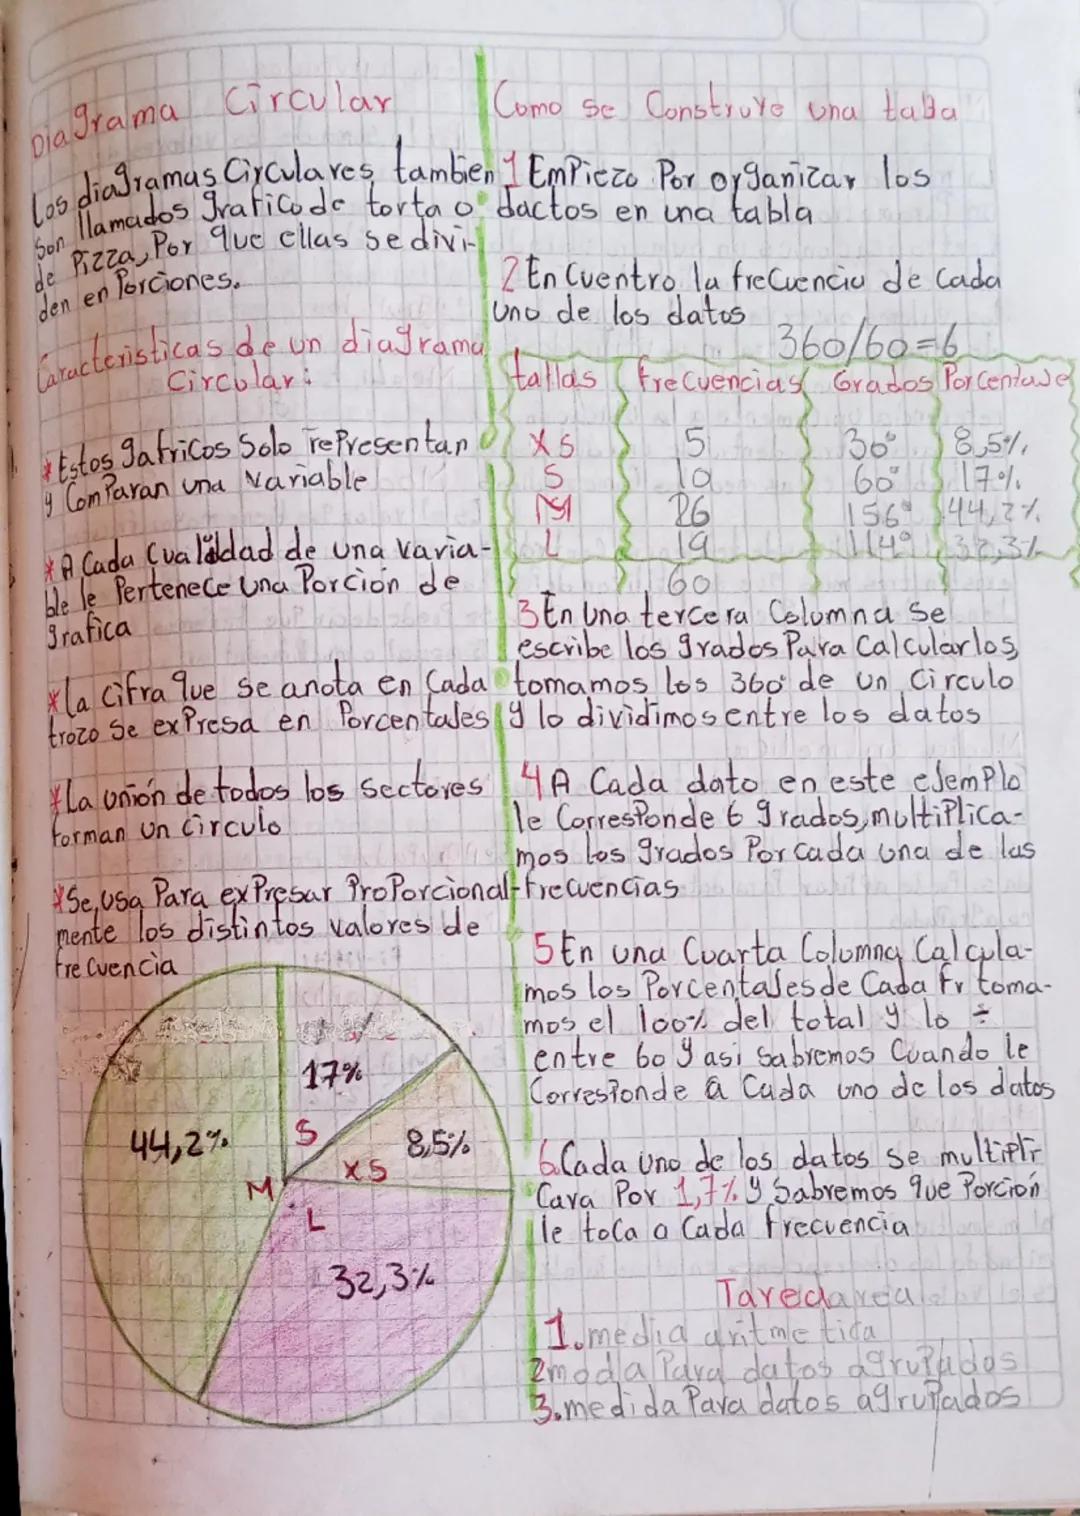 Diagrama Circular
Los diagramas Circulares tambien
son llamados graficode torta o
de Pizza, Por que ellas se divi-
den en Porciones.
Caracteristicas de un diagrama
Circular:
*Estos gafricos Solo rePresentan
y ComParan una variable
*A Cada Cualidad de una varia-
ble le Pertenece una Porción de
grafica
*la cifra que se anota en Cada
trozo se exPresa en Porcentajes
*La unión de todos los Sectores
forman un circulo
*Se usa Para exPresar ProPorcional-
mente los distintos valores de
frecuencia
17%
S
44,2%
M
8,5%
XS
L
32,3%
Como se Construye una tabla
1 EmPiezo Por organizar los
dactos en una tabla
2 En Cuentro la frecuencia de Cada
uno de los datos
360/60=6
tallas frecuencias Grados Porcentaje
XS 5 30° 8,5%
S 10 60° 17%
M 26 156° 44,2%
L 19 114° 32,3%
60
3 En una tercera Columna Se
escribe los grados Para Calcularlos,
tomamos los 360° de un circulo
y lo dividimos entre los datos
4 A Cada dato en este ejemPlo
le CorresPonde 6 grados, multiPlica-
mos los grados Por cada una de las
frecuencias
5 En una Cuarta Columna Calcula-
mos los Porcentajes de Cada Fr toma-
mos el 100% del total y lo ÷
entre 60 y asi Sabremos Cuando le
CorresPonde a Cada uno de los datos
6. Cada uno de los datos se multipli
Cara Por 1,7% y Sabremos que Porción
le toca a Cada frecuencia
Tarea
1. media aritmetica
2 moda Para datos agruPados
3. medida Para datos agruPados